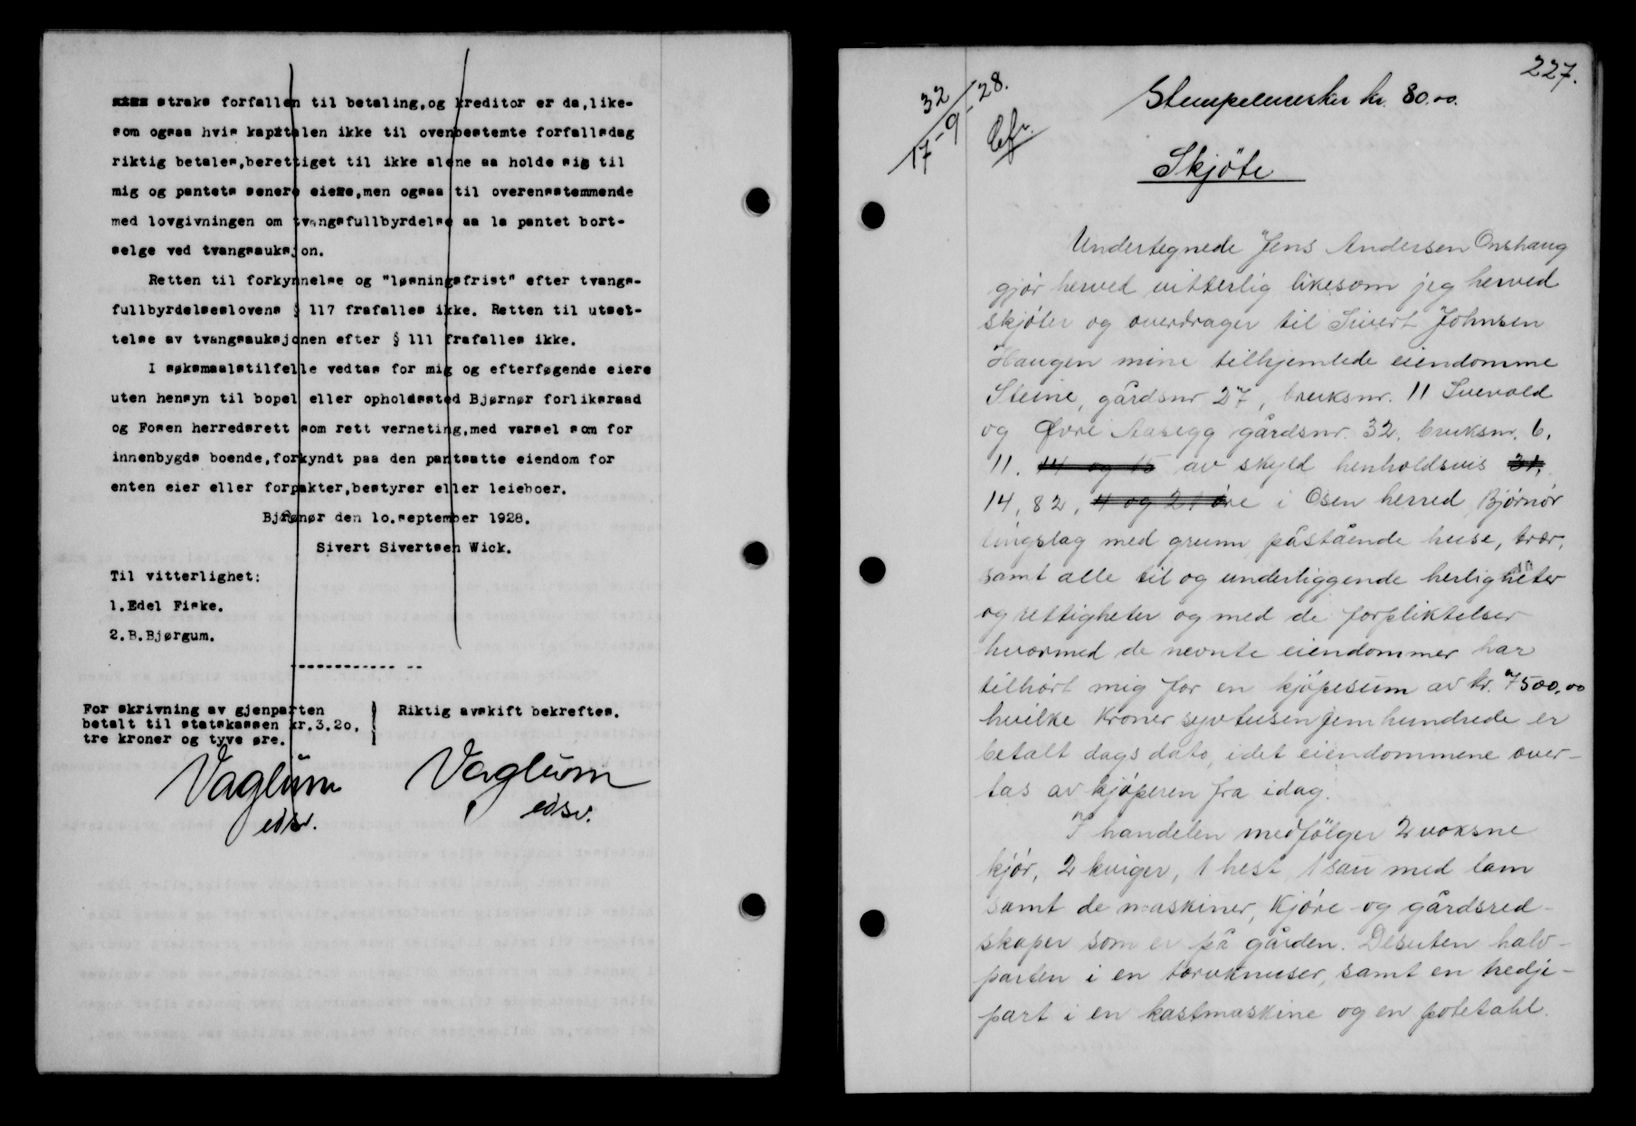 straks forfallen til betaling,og kreditor er da,like-
som ogsaa hvis kapitalen ikke til ovenbestemte forfallsdag
riktig betales,berettiget til ikke alene aa holde sig til
mig og pantets senere eiere,men ogsaa til overensstemmende
med lovgivningen om tvangsfullbyrdelse aa la pantet bort-
selge ved tvangsauksjon.
Retten til forkynnelse og "løsningsfrist" efter tvangs-
fullbyrdelseslovens § 117 frafalles ikke. Retten til utset-
telse av tvangsauksjonen efter § 111 frafalles ikke.
I søksmaalstilfelle vedtas for mig og efterføgende eiere
uten hensyn til bopel eller opholdssted Bjørnør forliksraad
og Fosen herredsrett som rett verneting,med varsel som for
innenbygds boende,forkyndt paa den pantsatte eiendom for
enten eier eller forpakter,bestyrer eller leieboer.
Bjørnør den 10.september 1928.
Sivert Sivertsen Wick.
Til vitterlighet:
1.Edel Fiske.
2.B.Bjørgum.
For skrivning av gjenparten
betalt til statskassen kr.3.20,
tre kroner og tyve øre.
Vaglum
edsv.
Riktig avskift bekreftes.
Vaglum
edsv.
227.
32
17-9-28.
Stempelmerker kr. 80.00.
Skjöte
Undertegnede Jens Andersen Onshaug
gjör herved vitterlig likesom jeg herved
skjöter og overdrager til Sivert Johnsen
Haugen mine tilhjemlede eiendomme
Steine, gårdsnr 27, bruksnr. 11 Svevold
og Övre Aasegg gårdsnr. 32, bruksnr. 6,
11. 14 og 15 av skyld henholdsvis 31,
14, 82, 4 og 21 öre i Osen herred, Björnör
tinglag med grunn påstående huse, trær,
samt alle til og underliggende herligheter
og rettigheter og med de forpliktelser
hvormed de nevnte eiendommer har
tilhört mig for en kjöpesum av kr. 7500,00
hvilke Kroner syvtusenfemhundrede er
betalt dags dato, idet eiendommene over-
tas av kjöperen fra idag.
I handelen medfölger 2 voksne
kjör, 2 kviger, 1 hest, 1 sau med lam
samt de maskiner, Kjöre og gårdsred-
skaper som er på gården. Desuten halv-
parten i en torvknuser, samt en tredje-
part i en kastmaskine og en potetahl.